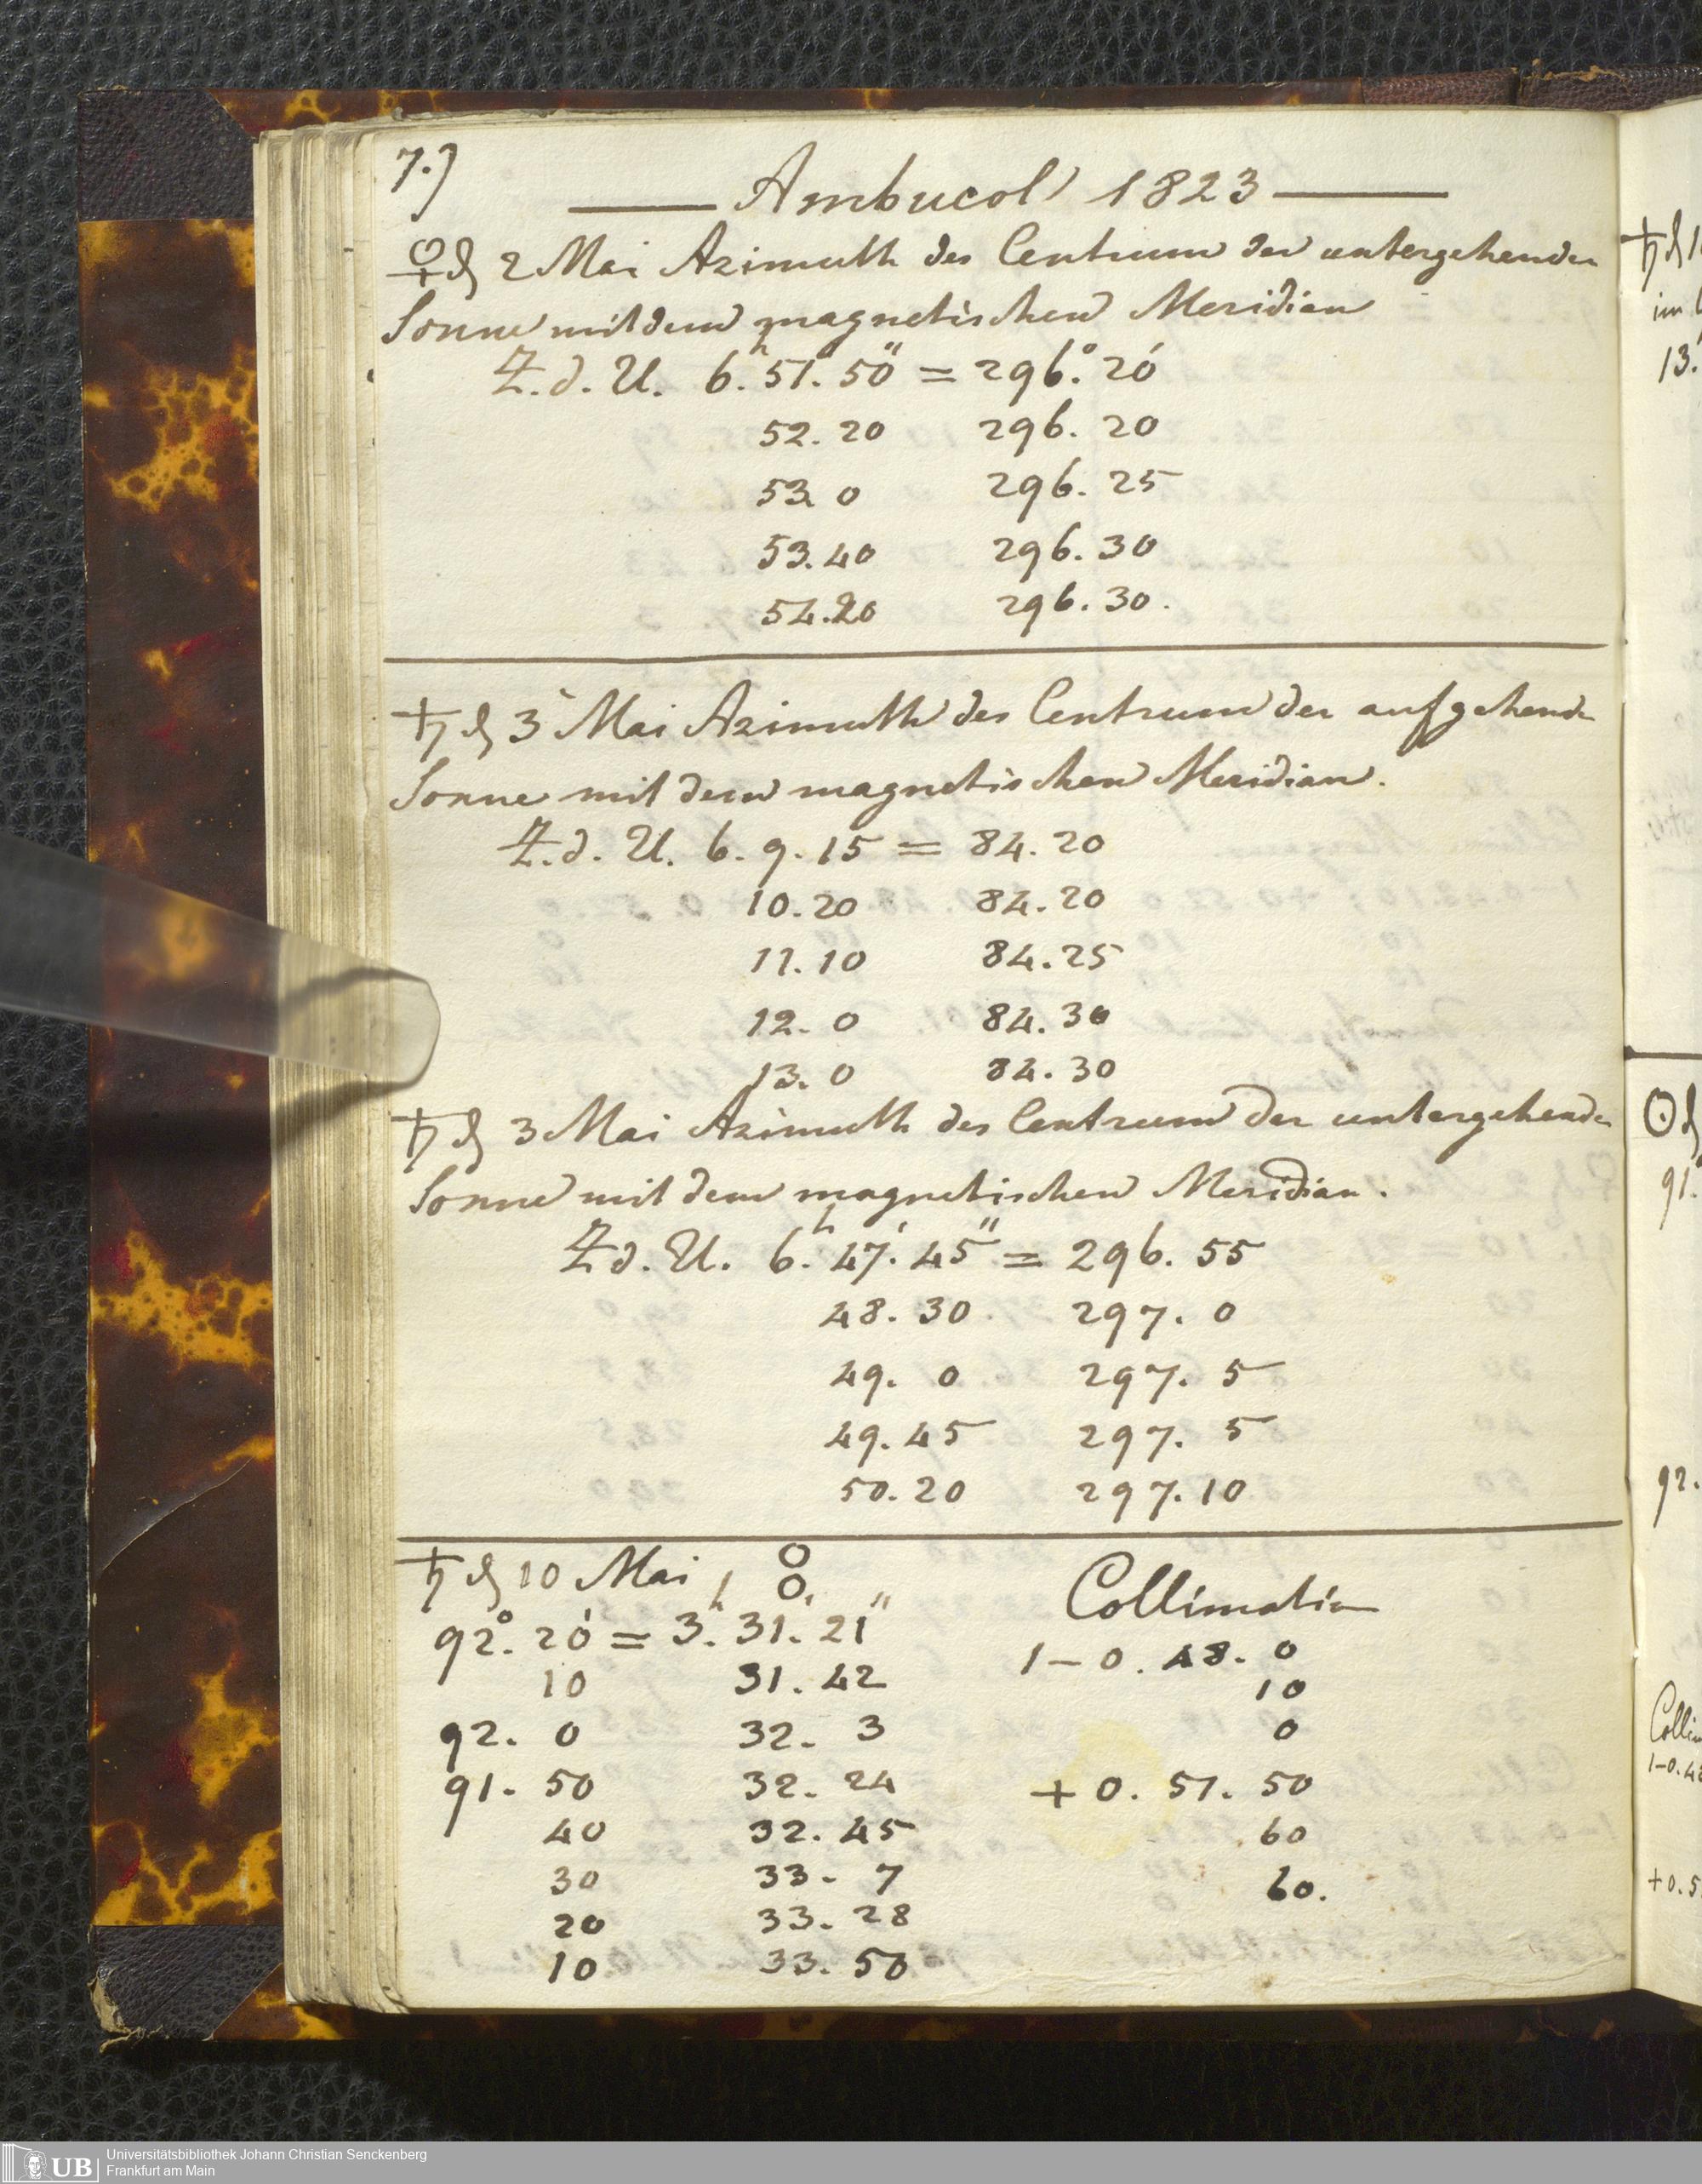 7.)
Ambucol 1823
♀ d 2 Mai Azimuth des Centrum der untergehenden
Sonne mit dem magnetischen Meridian
Z. d. U. 6.h 51.' 50" = 296.° 20'
52. 20 296. 20
53. 0 296. 25
53. 40 296. 30
54. 20 296. 30.
♄ d 3 Mai Azimuth des Centrum der aufgehende
Sonne mit dem magnetischen Meridian.
Z. d. U. 6. 9. 15 = 84. 20
10. 20 84. 20
11. 10 84. 25
12. 0 84. 30
13. 0 84. 30
♄ d 3 Mai Azimuth des Centrum der untergehende
Sonne mit dem magnetischen Meridian.
Z d. U. 6.h 47.' 45" = 296. 55
48. 30 297. 0
49. 0 297. 5
49. 45 297. 5
50. 20 297. 10
♄ d 10 Mai
Collimation
92.° 20' = 3.h 31.' 21"
1 – 0. 48. 0
10 31. 42
10
92. 0 32. 3
0
91. 50 32. 24
+ 0. 51. 50
40 32. 45
60
30 33. 7
60.
20 33. 28
10 33. 50
♄ d
im
13.
☉ d
91.
92.
1–0.
+0.5
UB
Universitätsbibliothek Johann Christian Senckenberg
Frankfurt am Main